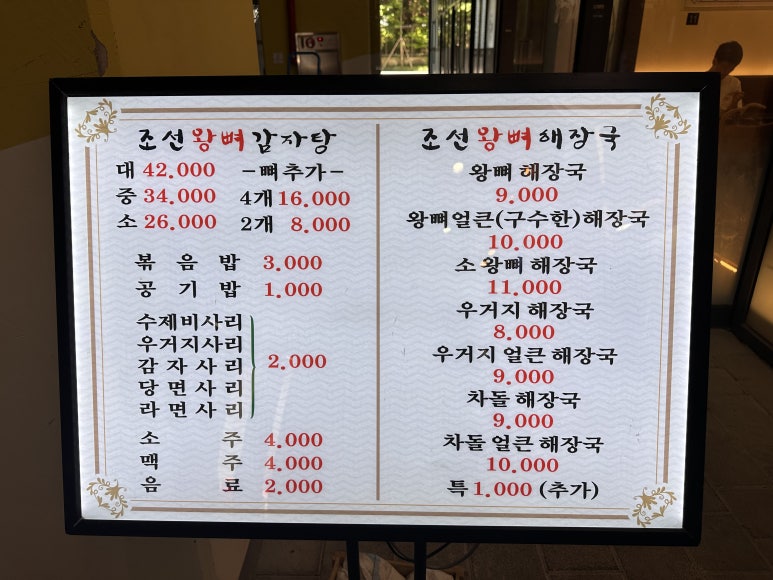 조선왕뼈감자탕
대 42.000
중 34.000
소 26.000
-뼈추가-
4개 16.000
2개 8.000
볶음밥 3.000
공기밥 1.000
수제비사리
우거지사리
감자사리
당면사리
라면사리
2.000
소주 4.000
맥주 4.000
음료 2.000
조선왕뼈해장국
왕뼈 해장국
9.000
왕뼈얼큰(구수한)해장국
10.000
소 왕뼈 해장국
11.000
우거지 해장국
8.000
우거지 얼큰 해장국
9.000
차돌 해장국
9.000
차돌 얼큰 해장국
10.000
특 1.000 (추가)